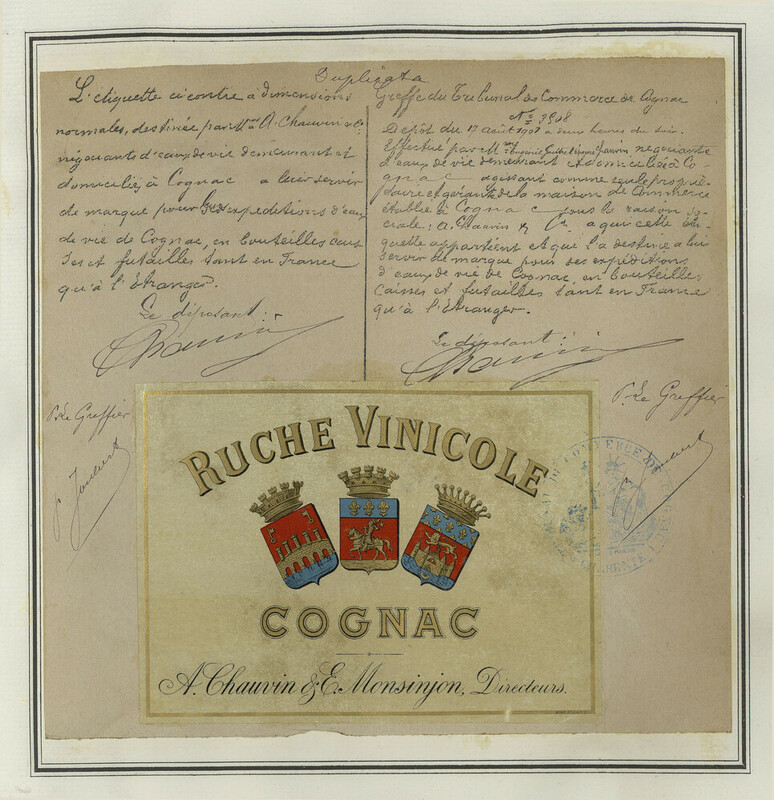 Duplicata
L'étiquette ci contre à dimensions
normales, destinée par MM. A. Chauvin & Cie
négociants d'eaux de vie demeurant et
domiciliés à Cognac a leur servir
de marque pour expéditions d'eaux
de vie de Cognac, en bouteilles cais
ses et futailles tant en France
qu'à l'Etranger.
Le déposant :
Chauvin
P. Le Greffier
Greffe du Tribunal de Commerce de Cognac
No 3508
Dépôt du 17 Août à deux heures du soir.
Effectué par Mme Chauvin négociante
d'eaux de vie demeurant et domiciliée à Co-
gnac agissant comme seule proprié-
taire et gérante de la maison de Commerce
établie à Cognac sous la raison so-
ciale : A. Chauvin & Cie a qui cette éti-
quette appartient et qui la destine a lui
servir de marque pour ses expéditions
d'eaux de vie de Cognac, en bouteilles
caisses et futailles tant en France
qu'à l'Etranger.
Le déposant :
Chauvin
P. Le Greffier
RUCHE VINICOLE
COGNAC
A. Chauvin & E. Monsinjon, Directeurs.